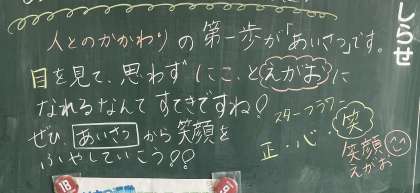 しらせ
人とのかかわりの第一歩が「あいさつ」です。
目を見て、思わずにこっとえがおに
なれるなんてすてきですね!
ぜひ、あいさつから笑顔を
ふやしていこう!!
スターフラワー
正・心・笑
笑顔
えがお
18